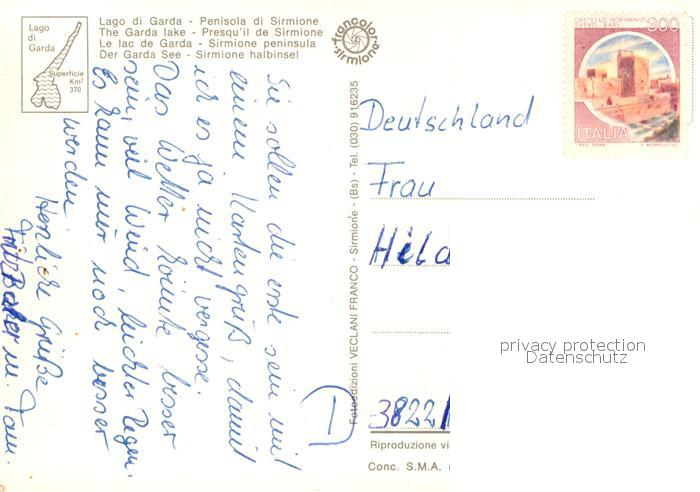 Lago
di
Garda
Superficie
Km²
370
Lago di Garda - Penisola di Sirmione
The Garda lake - Presqu'il de Sirmione
Le lac de Garda - Sirmione peninsula
Der Garda See - Sirmione halbinsel
francolor
sirmione
Sie sollen die erste sein mit
einem Kartengruß, damit
ich es ja nicht vergesse.
Das Wetter könnte besser
sein, viel Wind, leichter Regen.
Es kann nur noch besser
werden.
Herzliche Grüße
u. Fam.
Fotoedizioni VECLANI FRANCO - Sirmione - (Bs) - Tel. (030) 916235
CASTELLO NORMANNO
SVEVO BARI
300
ITALIA
Deutschland
Frau
Hild
D
3822
privacy protection
Datenschutz
Riproduzione vi
Conc. S.M.A.